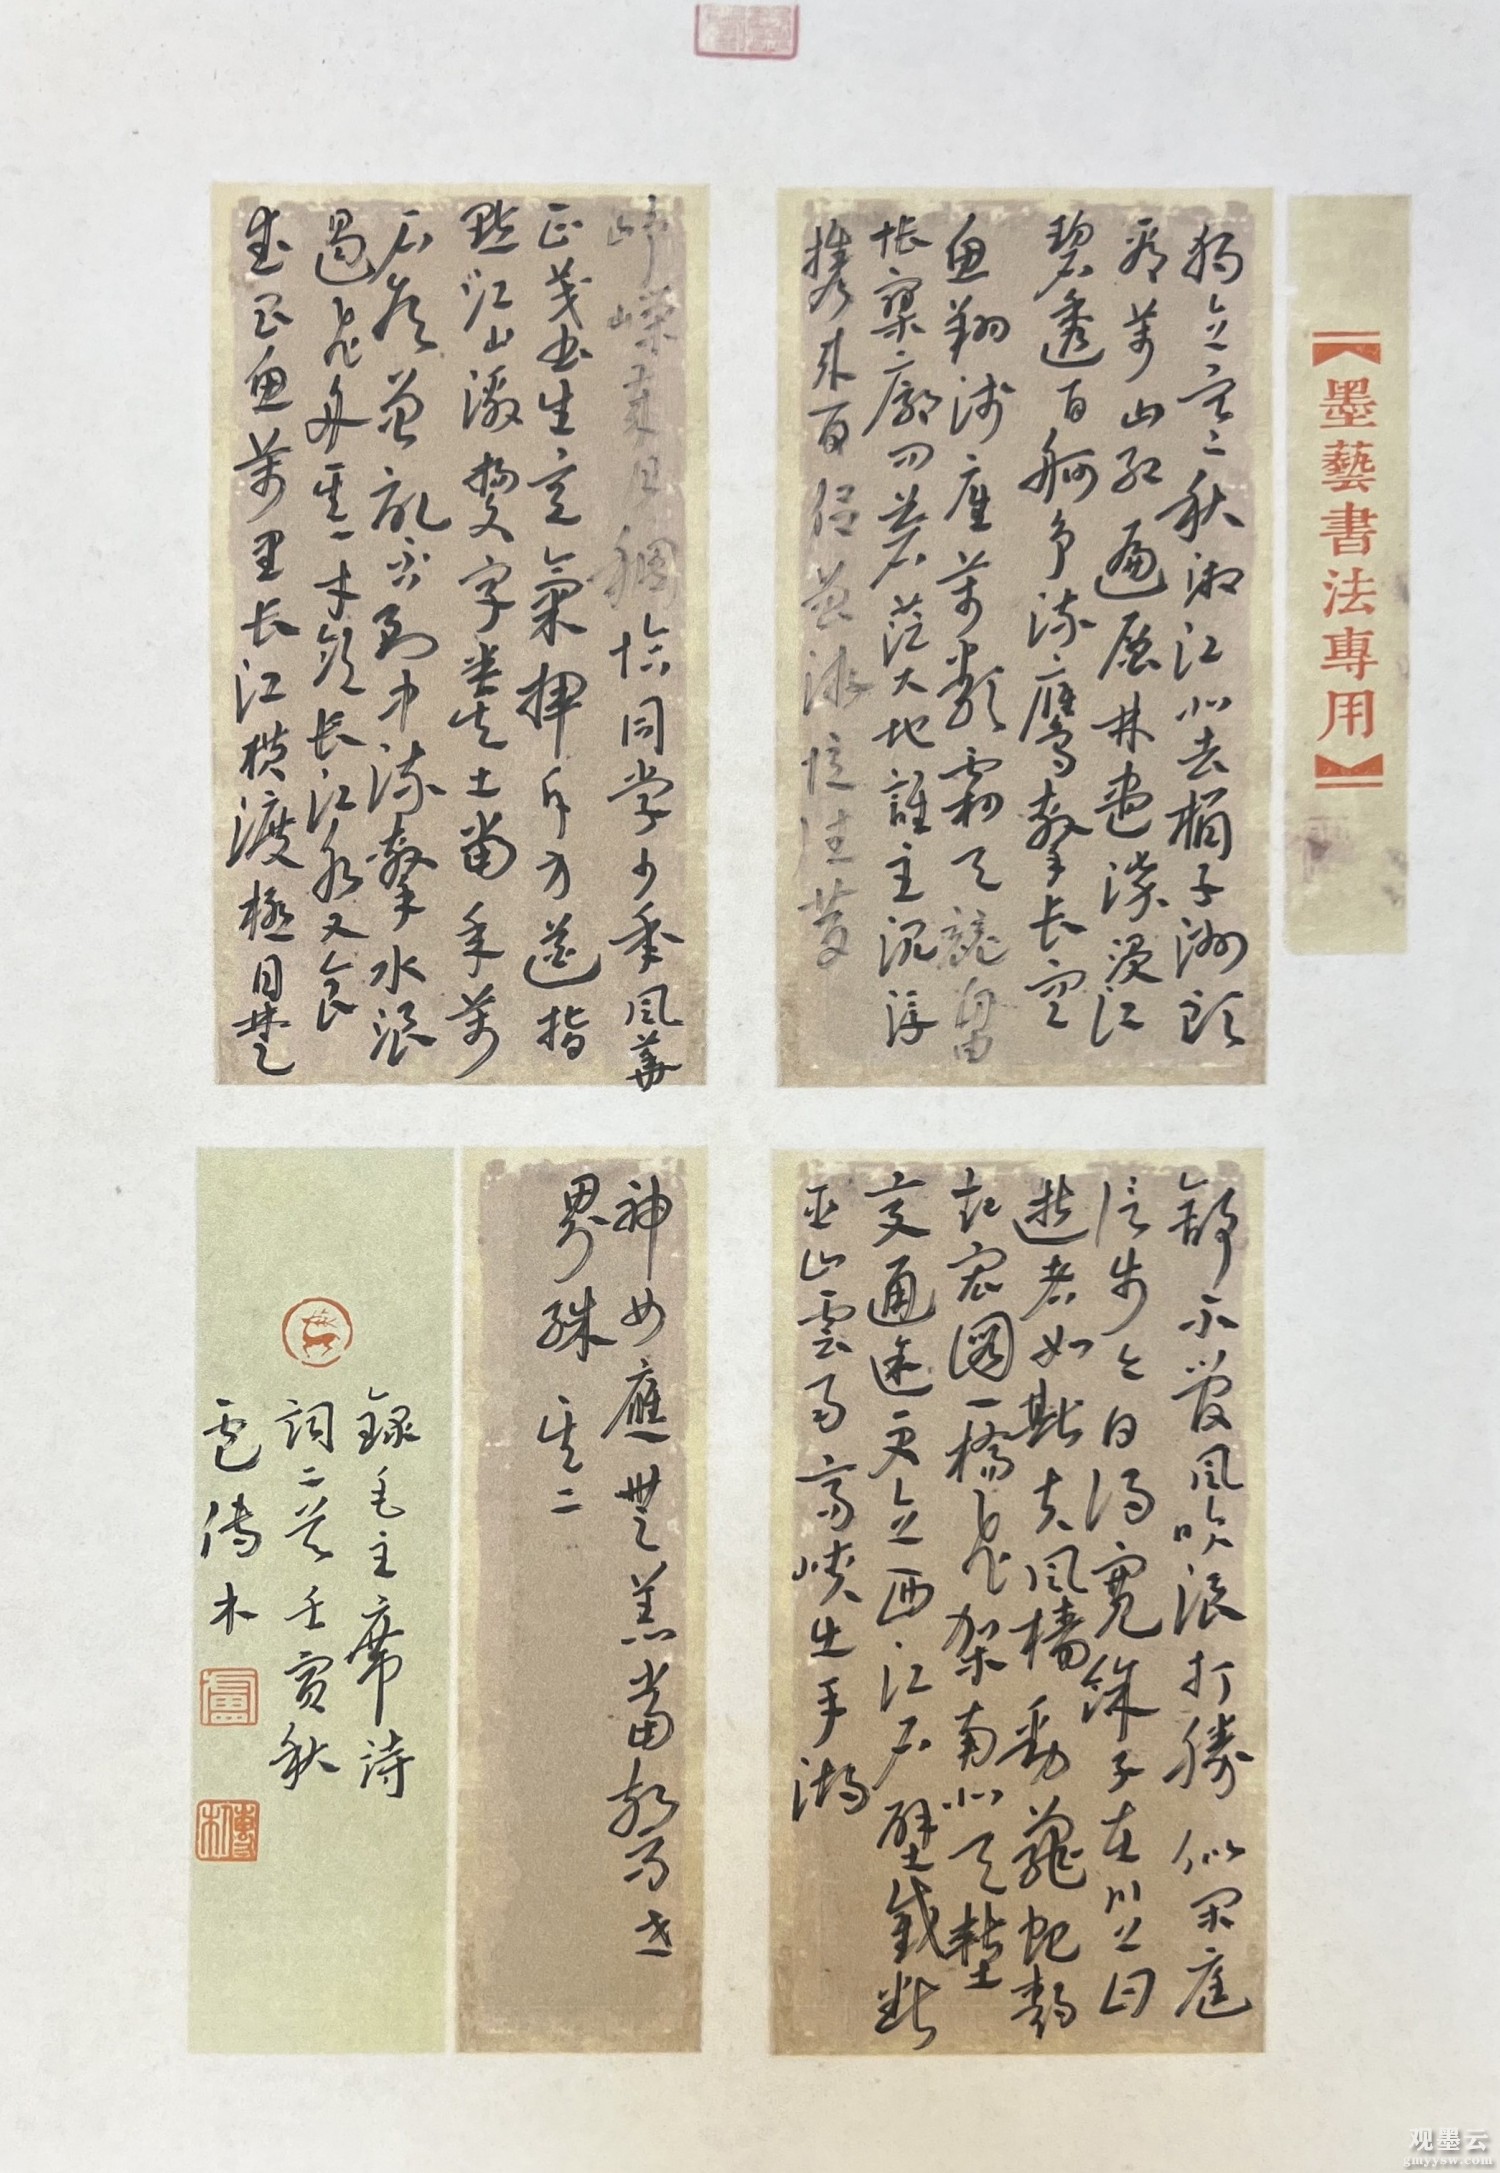 墨藝書法專用
獨立寒秋湘江北去橘子洲頭
看萬山紅遍層林盡染漫江
碧透百舸爭流鷹擊长空
魚翔淺底萬類霜天競自由
悵寥廓问蒼茫大地誰主沉浮
攜来百侣曾游憶往昔
崢嶸歲月稠恰同学少年風華
正茂書生意氣揮斥方遒指
點江山激揚文字糞土當年萬
户侯曾記否到中流擊水浪
遏飛舟其一才飲长江水又食
武昌魚萬里长江横渡極目楚
天
舒不管風吹浪打勝似閑庭
信步今日得寬餘子在川上曰
逝者如斯夫風檣動龜蛇靜
起宏圖一橋飛架南北天塹
變通途更立西江石壁截斷
巫山雲雨高峽出平湖
神女應無恙當驚世
界殊其二
錄毛主席詩
詞二首壬寅秋
盧傳木
盧
傳木
观墨云
gmyysw.com